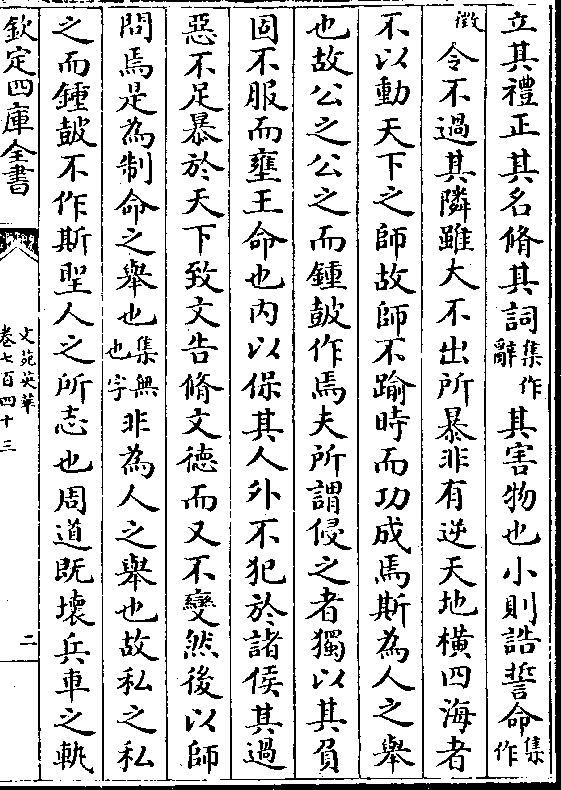 立其禮正其名脩其詞集作辭其害物也小則誥誓命集作
徵令不過其隣雖大不出所暴非有逆天地横四海者
不以動天下之師故師不踰時而功成焉斯為人之舉
也故公之公之而鍾皷作焉夫所謂侵之者獨以其負
固不服而壅王命也内以保其人外不犯於諸侯其過
惡不足暴於天下致文告脩文德而又不變然後以師
問焉是為制命之舉也集無也字非為人之舉也故私之私
之而鍾皷不作斯聖人之所志也周道既壊兵車之軌
欽定四庫全書
文苑英華
卷七百四十三
二